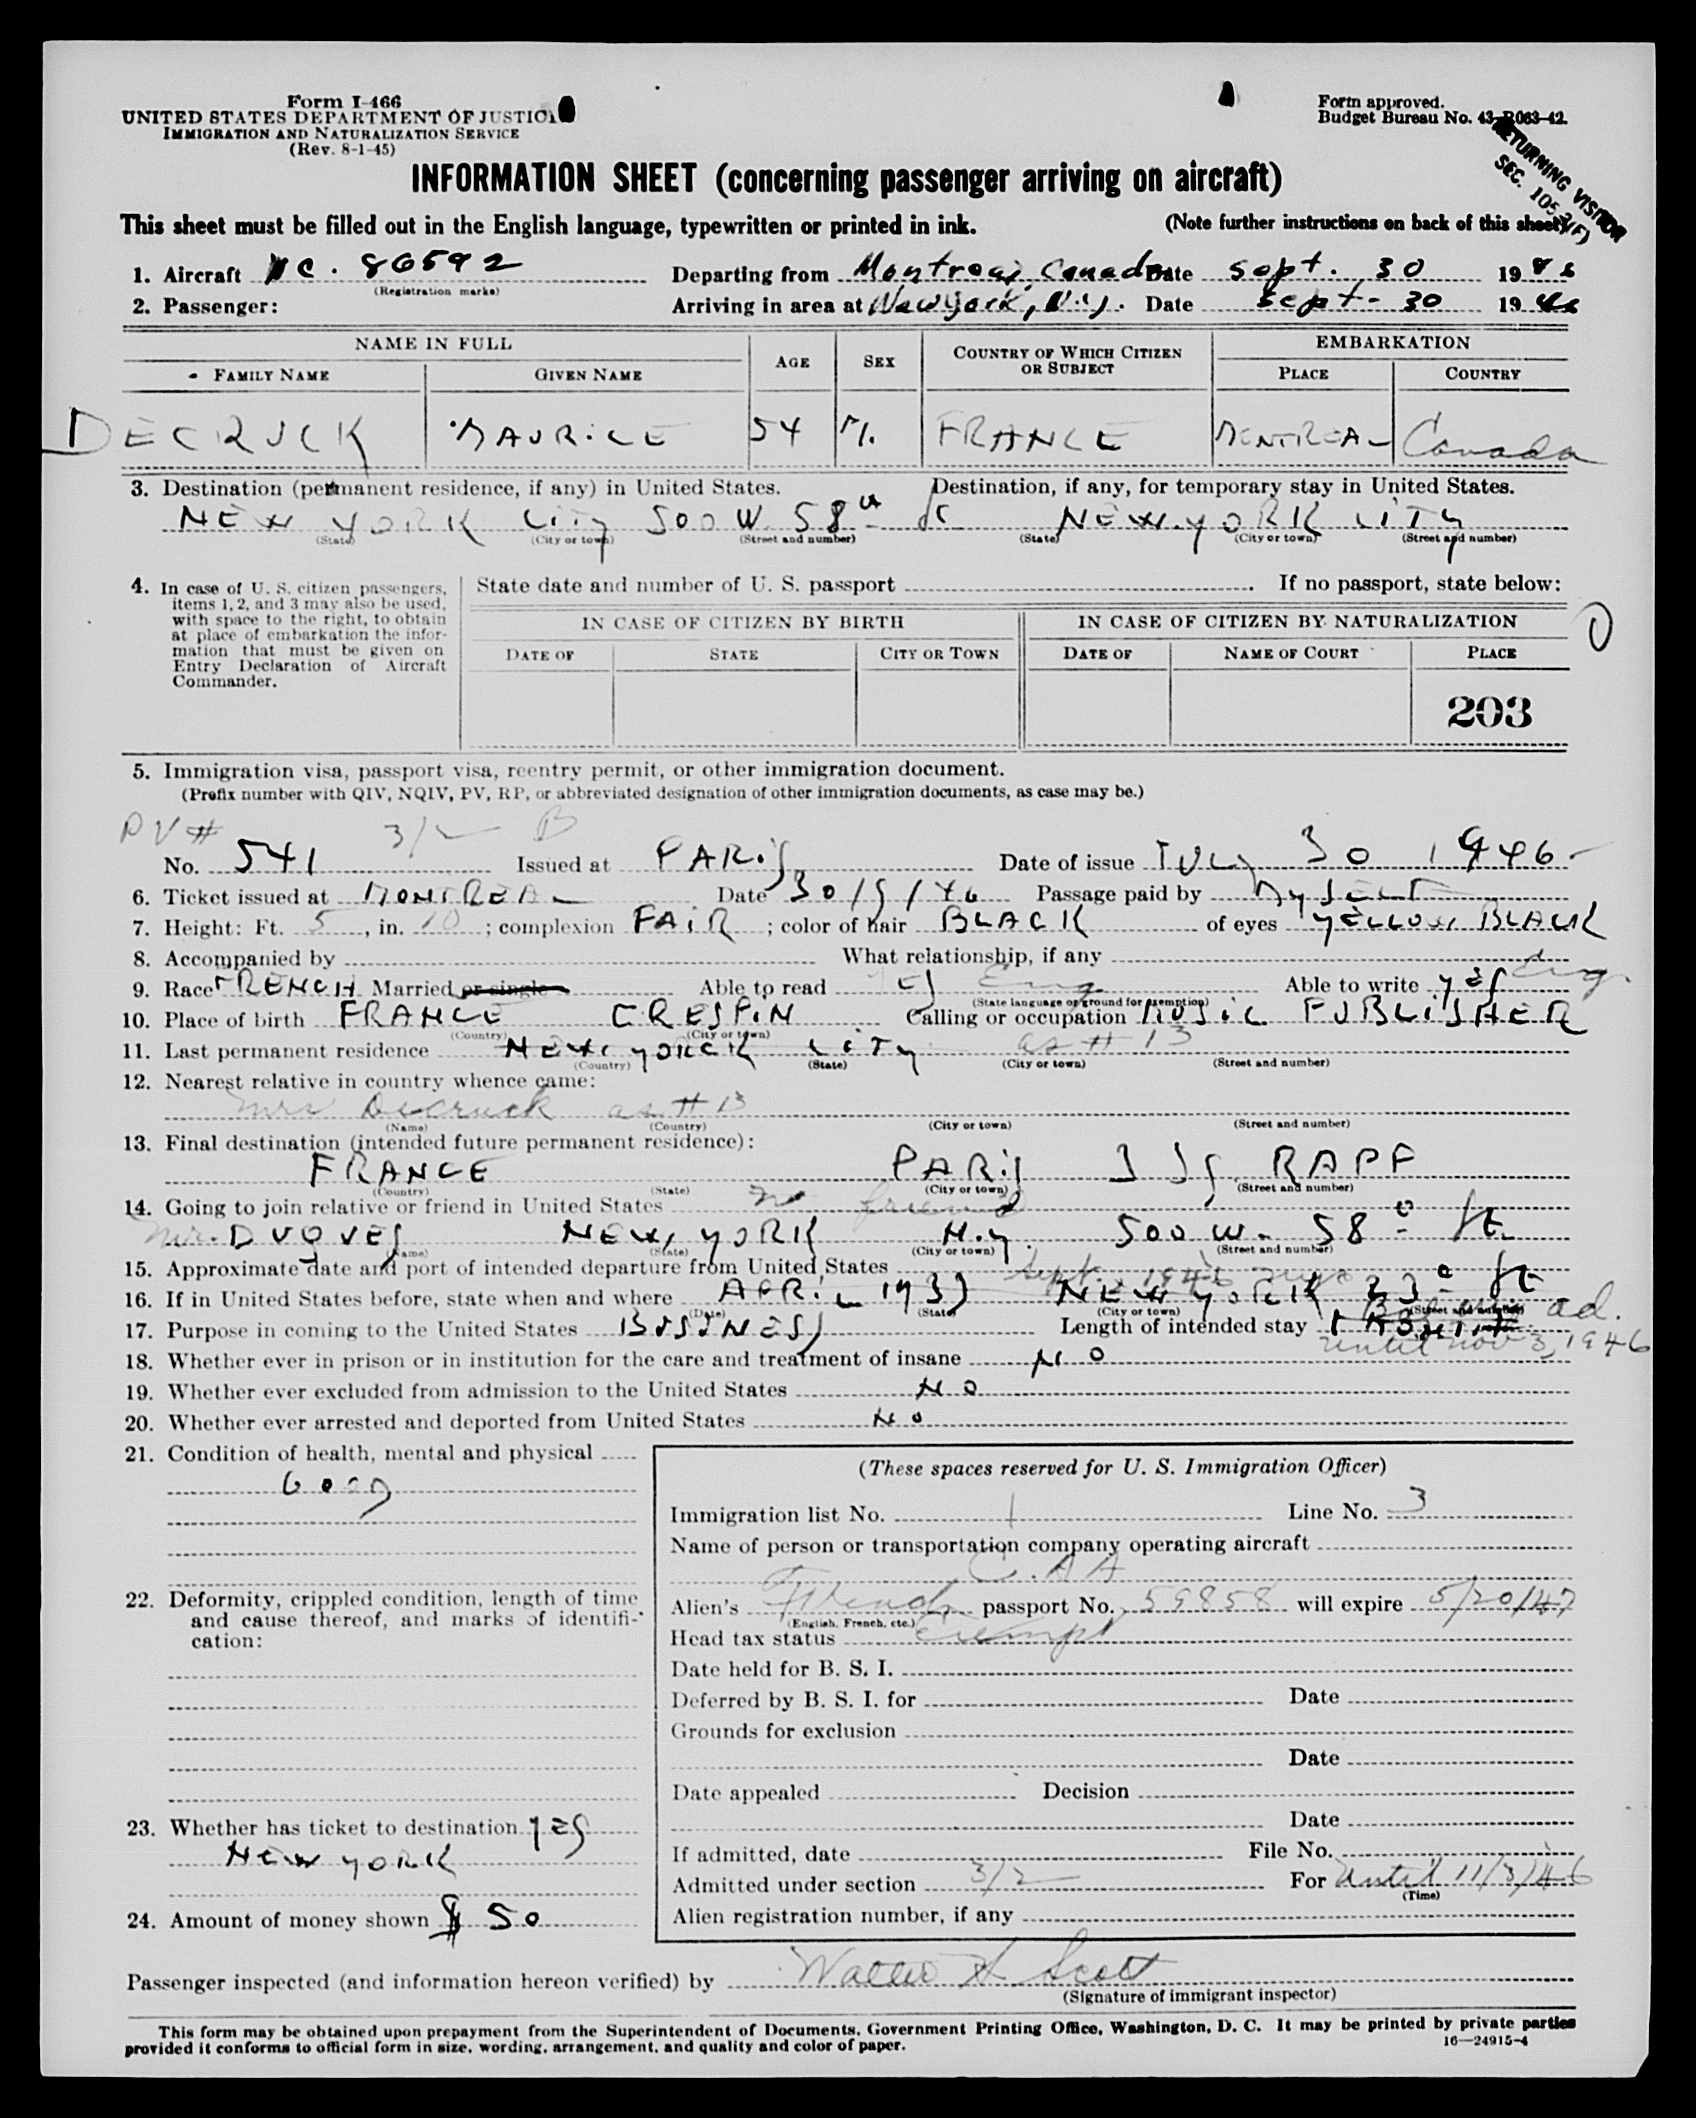 Form I-466
UNITED STATES DEPARTMENT OF JUSTICE
IMMIGRATION AND NATURALIZATION SERVICE
(Rev. 8-1-45)
Form approved.
Budget Bureau No. 43-R063-42.
RETURNING VISITOR
SEC.
INFORMATION SHEET (concerning passenger arriving on aircraft)
This sheet must be filled out in the English language, typewritten or printed in ink. (Note further instructions on back of this sheet)
1. Aircraft NC. 86592 Departing from Montreal, Canada Date Sept. 30 1946
(Registration marks)
2. Passenger: Arriving in area at New York, N.Y. Date Sept - 30 1946
NAME IN FULL AGE SEX COUNTRY OF WHICH CITIZEN OR SUBJECT EMBARKATION
FAMILY NAME GIVEN NAME PLACE COUNTRY
DECRUCK MAURICE 54 M. FRANCE MONTREAL Canada
3. Destination (permanent residence, if any) in United States. Destination, if any, for temporary stay in United States.
NEW YORK CITY 500 W. 58th St NEW YORK CITY
(State) (City or town) (Street and number) (State) (City or town) (Street and number)
4. In case of U. S. citizen passengers, items 1, 2, and 3 may also be used, with space to the right, to obtain at place of embarkation the information that must be given on Entry Declaration of Aircraft Commander.
State date and number of U. S. passport If no passport, state below:
IN CASE OF CITIZEN BY BIRTH IN CASE OF CITIZEN BY NATURALIZATION
DATE OF STATE CITY OR TOWN DATE OF NAME OF COURT PLACE
203
5. Immigration visa, passport visa, reentry permit, or other immigration document.
(Prefix number with QIV, NQIV, PV, RP, or abbreviated designation of other immigration documents, as case may be.)
PV # 3/2 B
No. 541 Issued at PARIS Date of issue JULY 30 1946
6. Ticket issued at MONTREAL Date 30/9/46 Passage paid by MYSELF
7. Height: Ft. 5, in. 10; complexion FAIR; color of hair BLACK of eyes YELLOW BLACK
8. Accompanied by What relationship, if any
9. Race FRENCH Married or single Able to read YES Eng Able to write YES Eng.
(State language or ground for exemption)
10. Place of birth FRANCE CRESPIN Calling or occupation MUSIC PUBLISHER
(Country) (City or town)
11. Last permanent residence NEW YORK CITY as # 13
(Country) (State) (City or town) (Street and number)
12. Nearest relative in country whence came:
Mrs Decruck as # 13
(Name) (Country) (City or town) (Street and number)
13. Final destination (intended future permanent residence):
FRANCE PARIS RAPP
(Country) (State) (City or town) (Street and number)
14. Going to join relative or friend in United States no friend
Mr. DUQUES NEW YORK N.Y. 500 W. 58 St.
(Name) (State) (City or town) (Street and number)
15. Approximate date and port of intended departure from United States Sept. 1946
16. If in United States before, state when and where APRIL 1937 NEW YORK 23 St
(Date) (State) (City or town) (Street and number)
17. Purpose in coming to the United States BUSINESS Length of intended stay 1 MONTH ad.
until Nov 3, 1946
18. Whether ever in prison or in institution for the care and treatment of insane NO
19. Whether ever excluded from admission to the United States NO
20. Whether ever arrested and deported from United States NO
21. Condition of health, mental and physical
GOOD
22. Deformity, crippled condition, length of time and cause thereof, and marks of identification:
23. Whether has ticket to destination YES
NEW YORK
24. Amount of money shown $ 50
(These spaces reserved for U. S. Immigration Officer)
Immigration list No. 1 Line No. 3
Name of person or transportation company operating aircraft
C.AA
Alien's French passport No. 59858 will expire 5/20/47
(English, French, etc.)
Head tax status Exempt
Date held for B. S. I.
Deferred by B. S. I. for Date
Grounds for exclusion
Date
Date appealed Decision
Date
If admitted, date File No.
Admitted under section 3/2 For Until 11/3/46
(Time)
Alien registration number, if any
Passenger inspected (and information hereon verified) by Walter H Scott
(Signature of immigrant inspector)
This form may be obtained upon prepayment from the Superintendent of Documents, Government Printing Office, Washington, D. C. It may be printed by private parties
provided it conforms to official form in size, wording, arrangement, and quality and color of paper.
16—24915-4